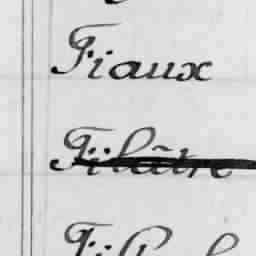 Fiaux
Filâtre